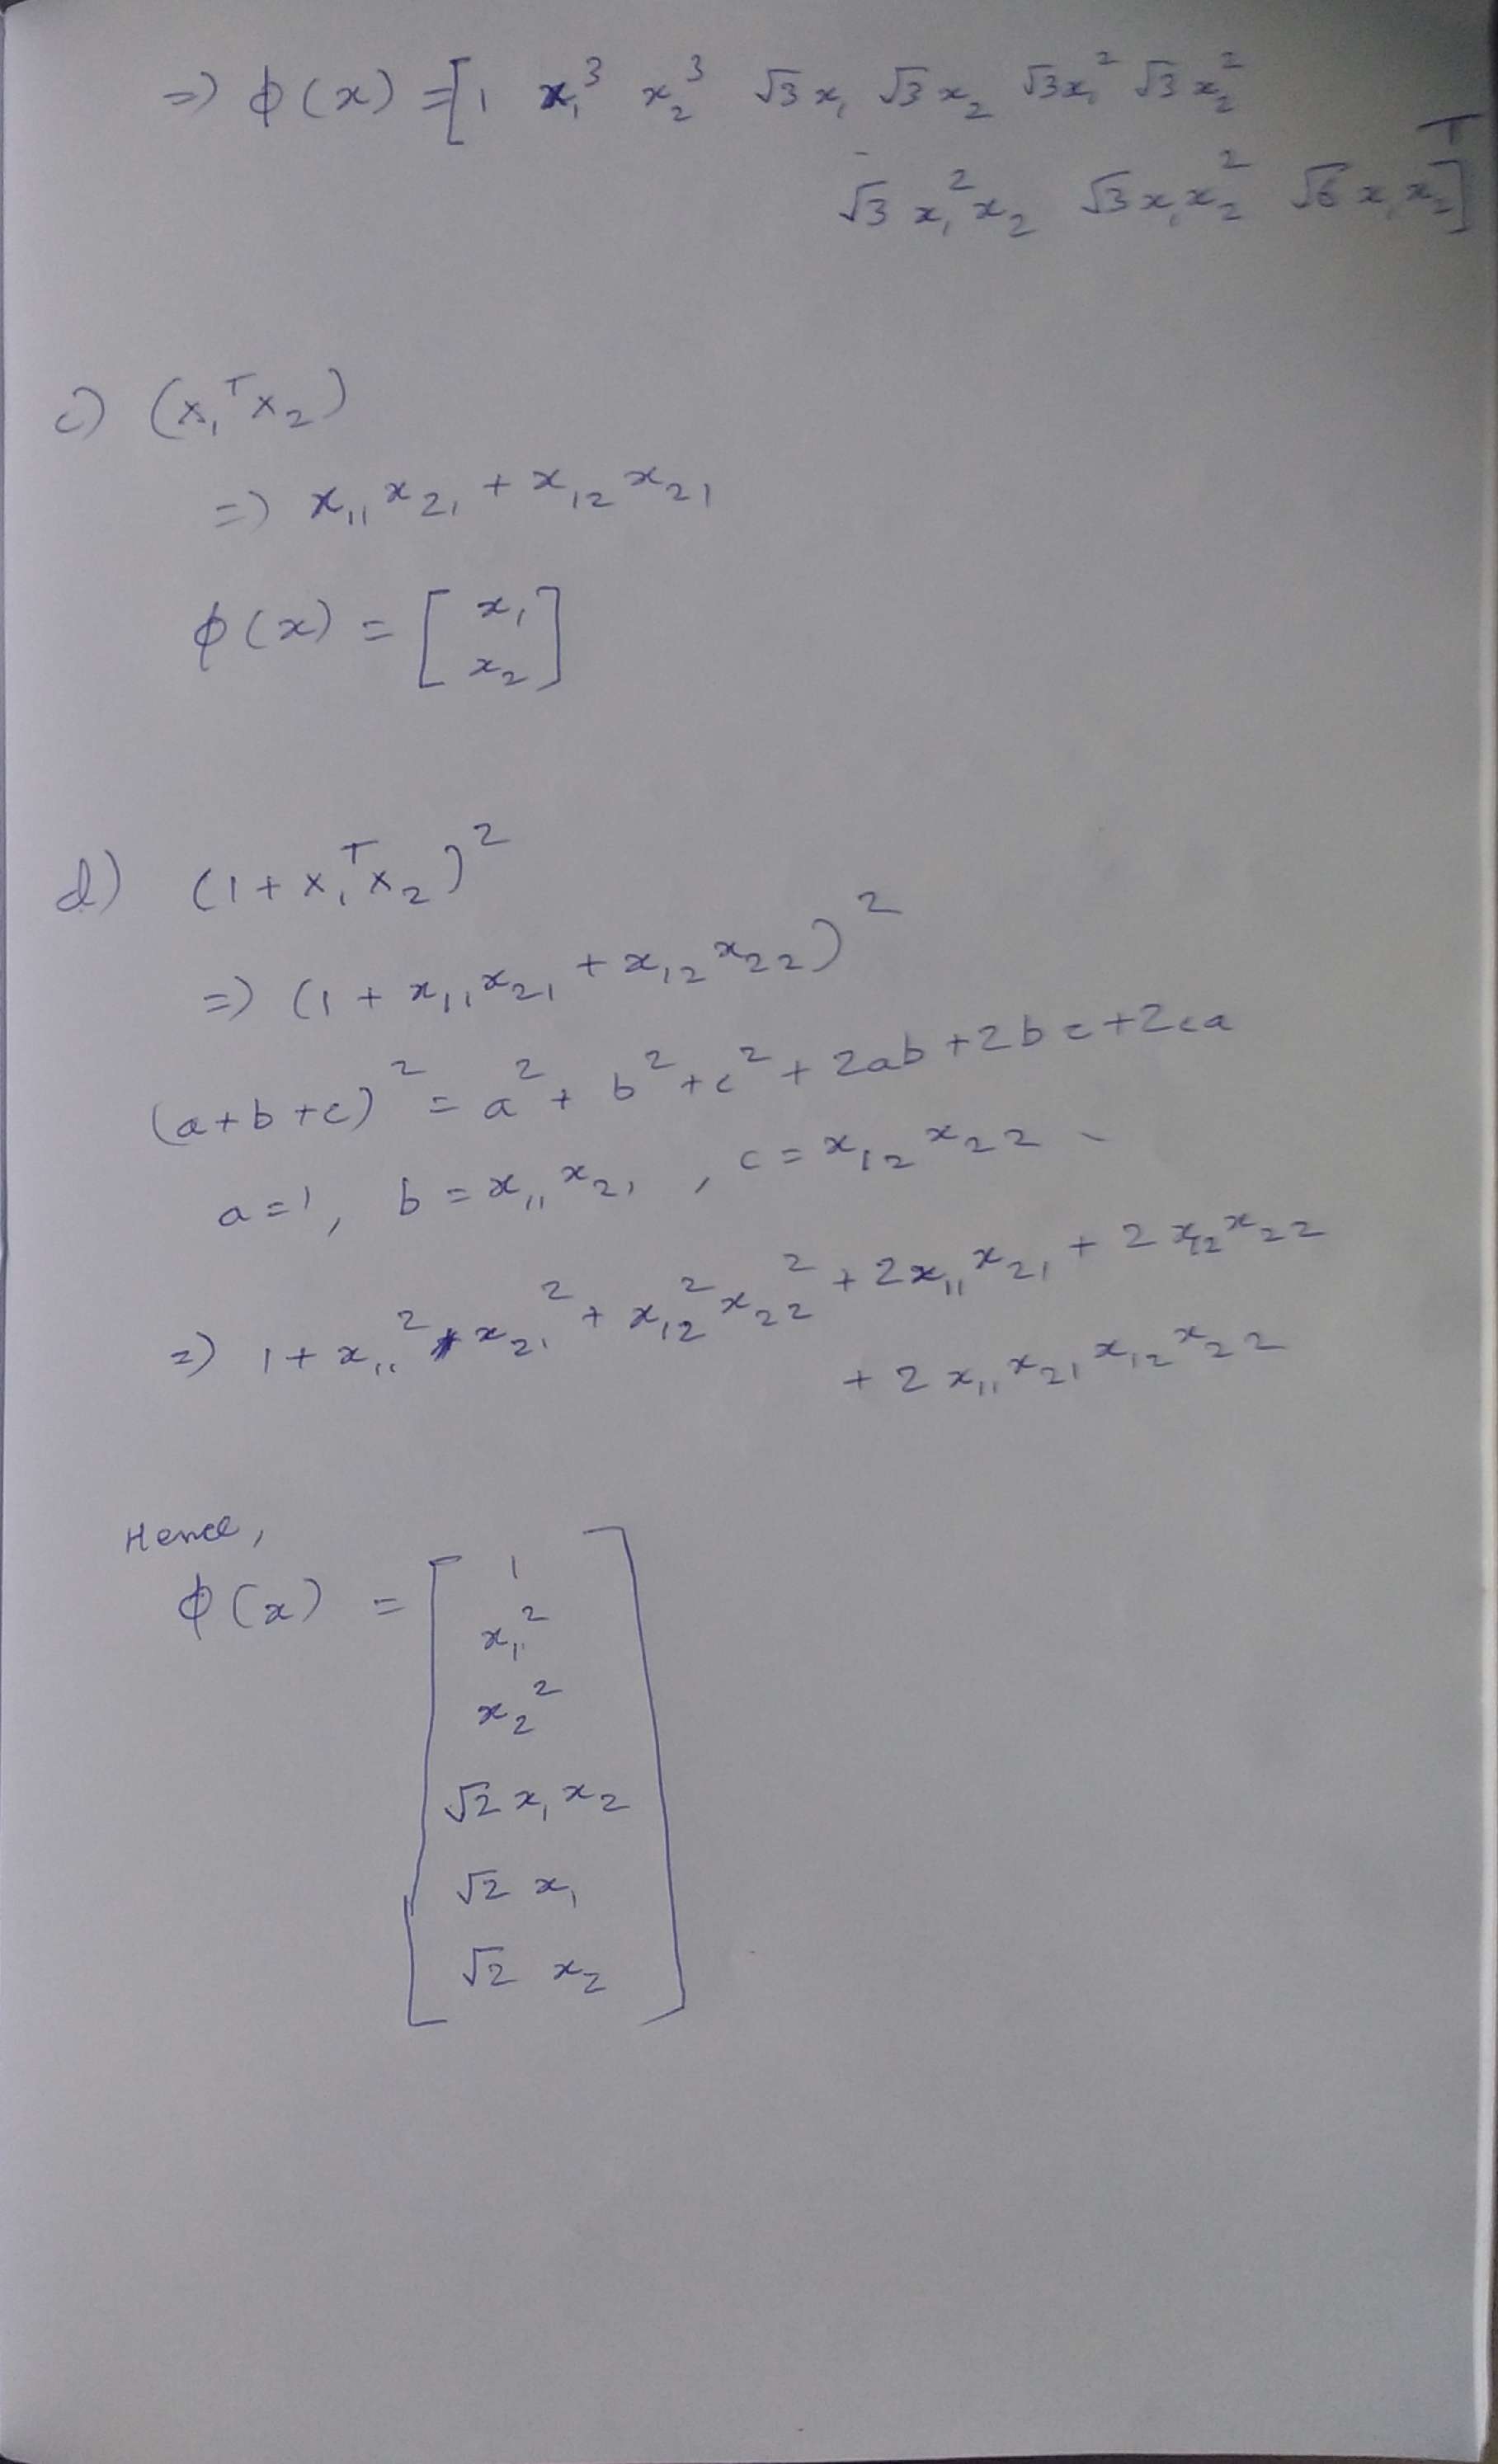 => ϕ(x) = [1 x₁³ x₂³ √3 x₁ √3 x₂ √3x₁² √3 x₂²
√3 x₁²x₂ √3 x₁x₂² √6 x₁x₂]ᵀ
c) (x₁ᵀx₂)
=> x₁₁x₂₁ + x₁₂x₂₁
ϕ(x) = [x₁
x₂]
d) (1 + x₁ᵀx₂)²
=> (1 + x₁₁x₂₁ + x₁₂x₂₂)²
(a+b+c)² = a² + b² + c² + 2ab + 2bc + 2ca
a = 1, b = x₁₁x₂₁, c = x₁₂x₂₂
=> 1 + x₁₁² x₂₁² + x₁₂²x₂₂² + 2x₁₁x₂₁ + 2x₁₂x₂₂
+ 2x₁₁x₂₁x₁₂x₂₂
Hence,
ϕ(x) = [1
x₁²
x₂²
√2 x₁x₂
√2 x₁
√2 x₂]